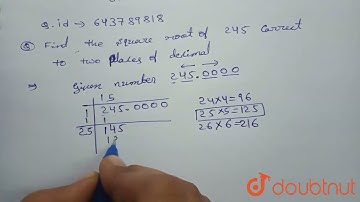 Q.id → 643789818
Q Find the square root of 245 correct
to two places of decimal
⇒ given number 245.0000
15
1 245.0000
1
25 145
12
24×4=96
25×5=125
26×6=216
doubtnut